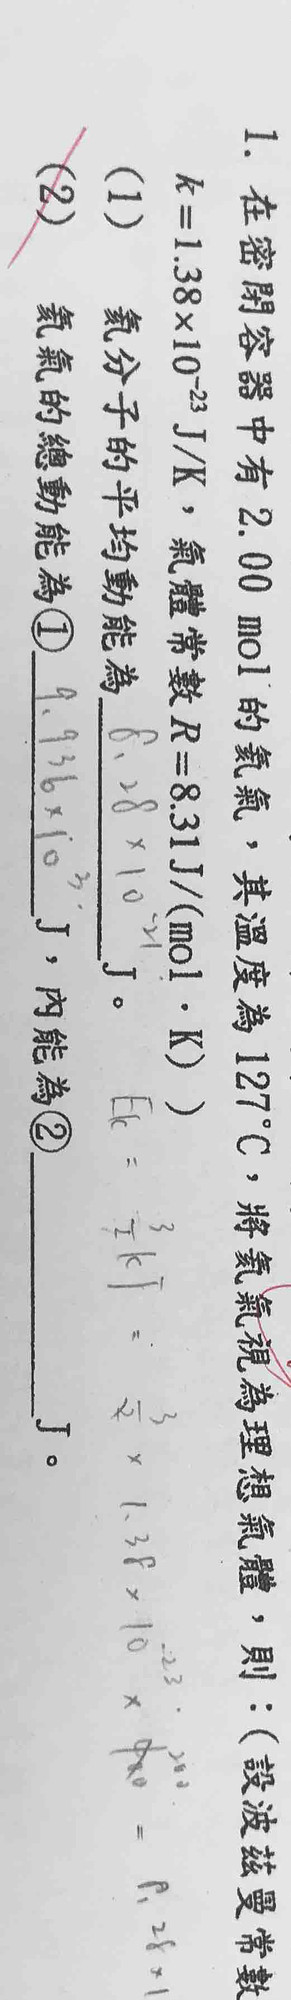 1. 在密閉容器中有 2.00 mol的氦氣，其溫度為 127℃，將氦氣視為理想氣體，則：(設波茲曼常數
k＝1.38×10⁻²³ J/K，氣體常數 R＝8.31 J/(mol．K) )
(1) 氦分子的平均動能為 8.28×10⁻²¹ J。 Ek = 3/2 kT = 3/2 × 1.38×10⁻²³ × = 8.28×1
(2) 氦氣的總動能為① 9.936×10³ J，內能為② J。